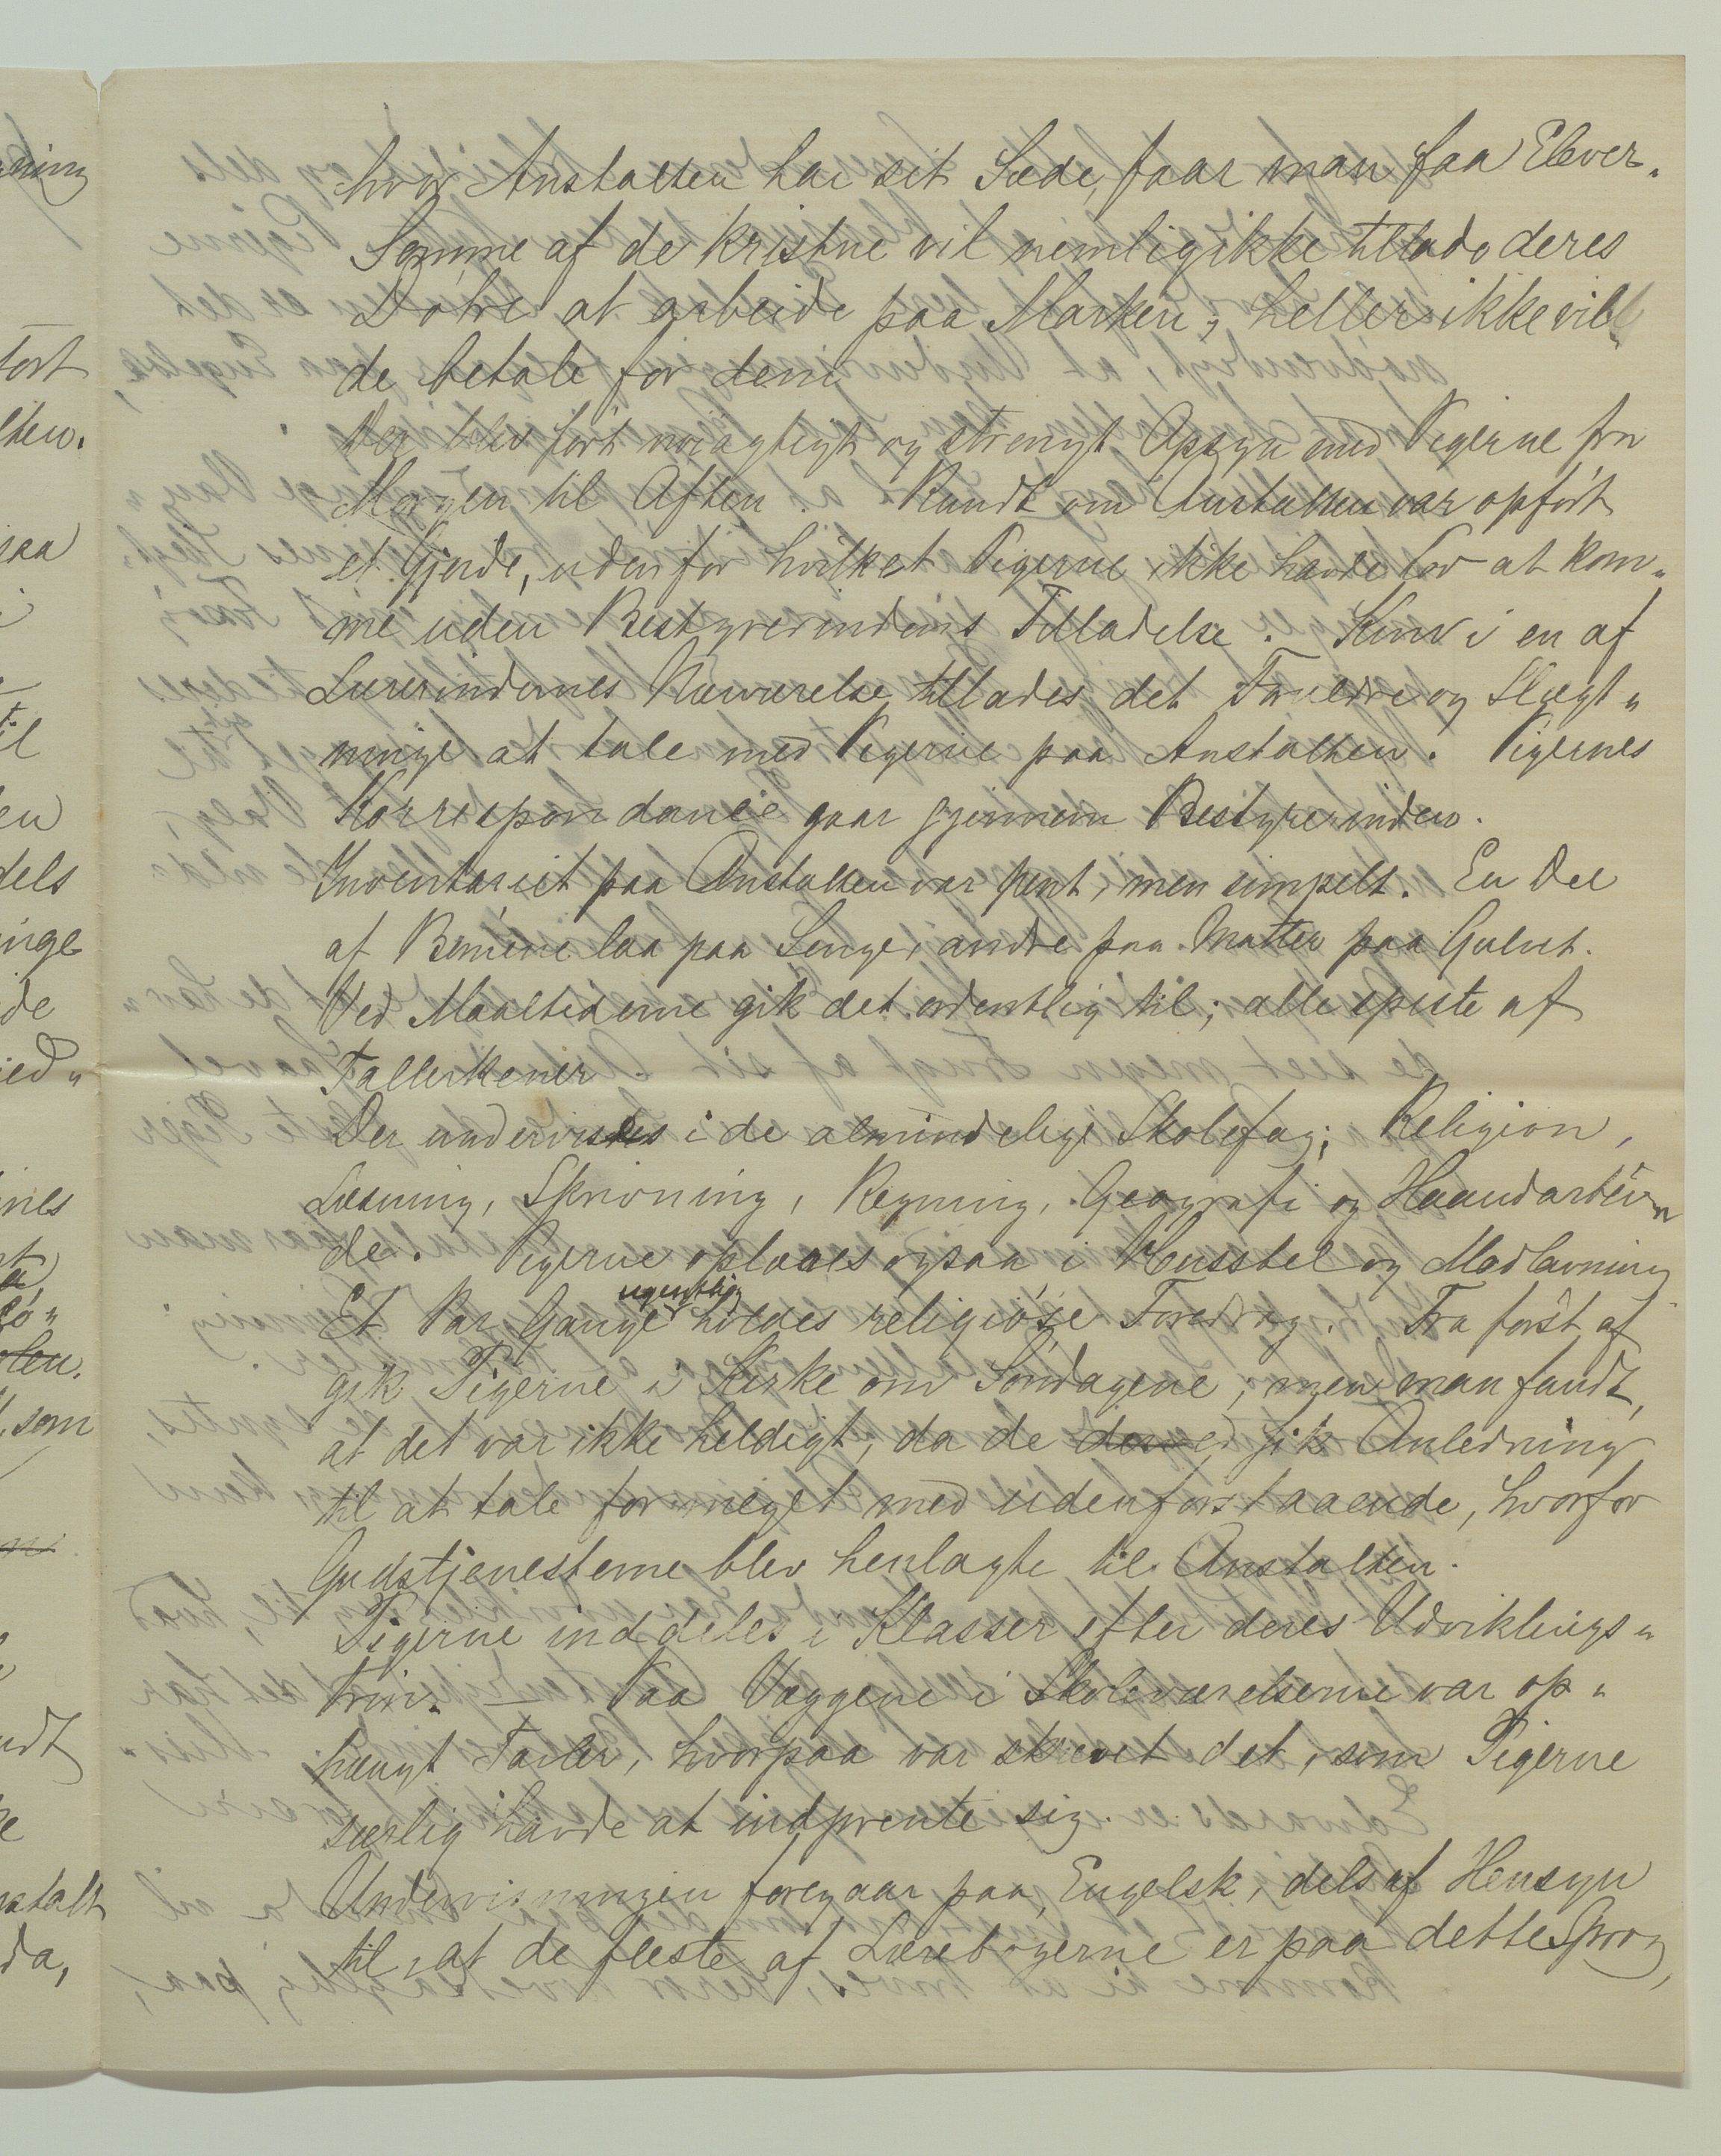 hvor Anstalten har sit Sæde, faar man faa Elever.
Somme af de kristne vil nemlig ikke tillade deres
Døtre at arbeide paa Marken, heller ikke vil
de betale for dem.
Der blev ført nøiagtigt og strengt Opsyn med Pigerne fra
Morgen til Aften. Rundt om Anstalten var opført
et Gjerde, udenfor hvilket Pigerne ikke havde Lov at kom„
me uden Bestyrerindens Tilladelse. Kun i en af
Lærerindernes Nærværelse tillades det Forældre og Slægt„
ninge at tale med Pigerne paa Anstalten. Pigernes
Korrespondance gaar gjennem Bestyrerinden.
Inventariet paa Anstalten var pent, men simpelt. En Del
af Børnene laa paa Senge, andre paa Matter paa Gulvet.
Ved Maaltiderne gik det ordentlig til; alle spiste af
Tallerkener.
Der undervises i de almindelige Skolefag; Religion,
Læsning, Skrivning, Regning, Geografi og Haandarbei„
de. Pigerne oplæres ogsaa i Husstel og Madlavning
Et Par Gange ugentlig holdes religiøse Foredrag. Fra først af
gik Pigerne i Kirke om Søndagene, men man fandt,
at det var ikke heldigt, da de derved fik Anledning
til at tale for meget med udenforstaaende, hvorfor
Gudstjenesterne blev henlagte til Anstalten.
Pigerne inddeles i Klasser efter deres Udviklings„
Trin. — Paa Væggene i Skoleværelserne var op„
hængt Tavler, hvorpaa var skrevet det, som Pigerne
særlig havde at indprente sig.
Undervisningen foregaar paa Engelsk, dels af Hensyn
til, at de fleste af Lærebøgerne er paa dette Sprog,